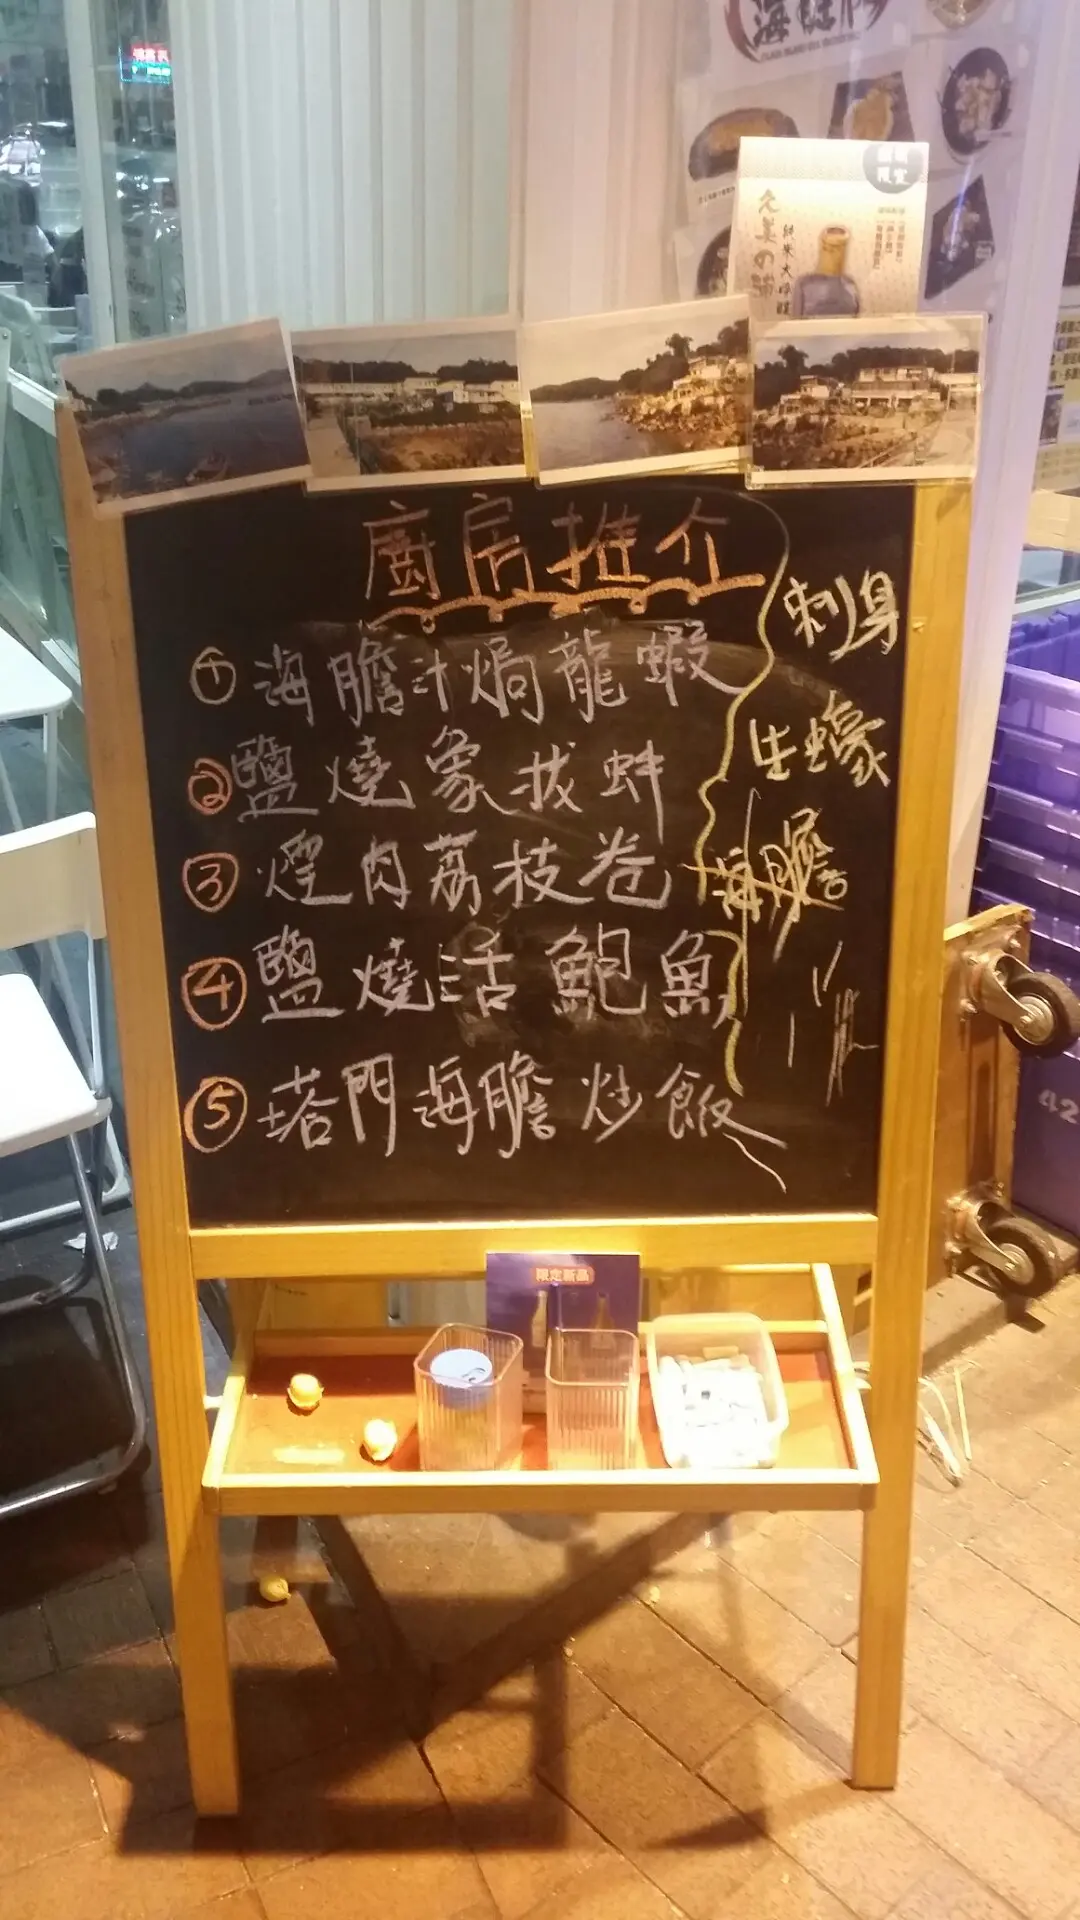 久美の浦
純米大吟醸
廚房推介
①海膽汁焗龍蝦
②鹽燒象拔蚌
③煙肉荔枝卷
④鹽燒活鮑魚
⑤塔門海膽炒飯
刺身
生蠔
海膽
限定新品
42